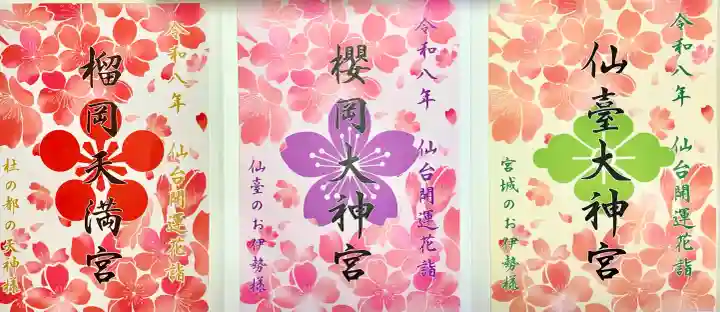 令和八年　仙台開運花詣
榴岡天満宮
杜の都の天神様
令和八年　仙台開運花詣
櫻岡大神宮
仙臺のお伊勢様
令和八年　仙台開運花詣
仙臺大神宮
宮城のお伊勢様